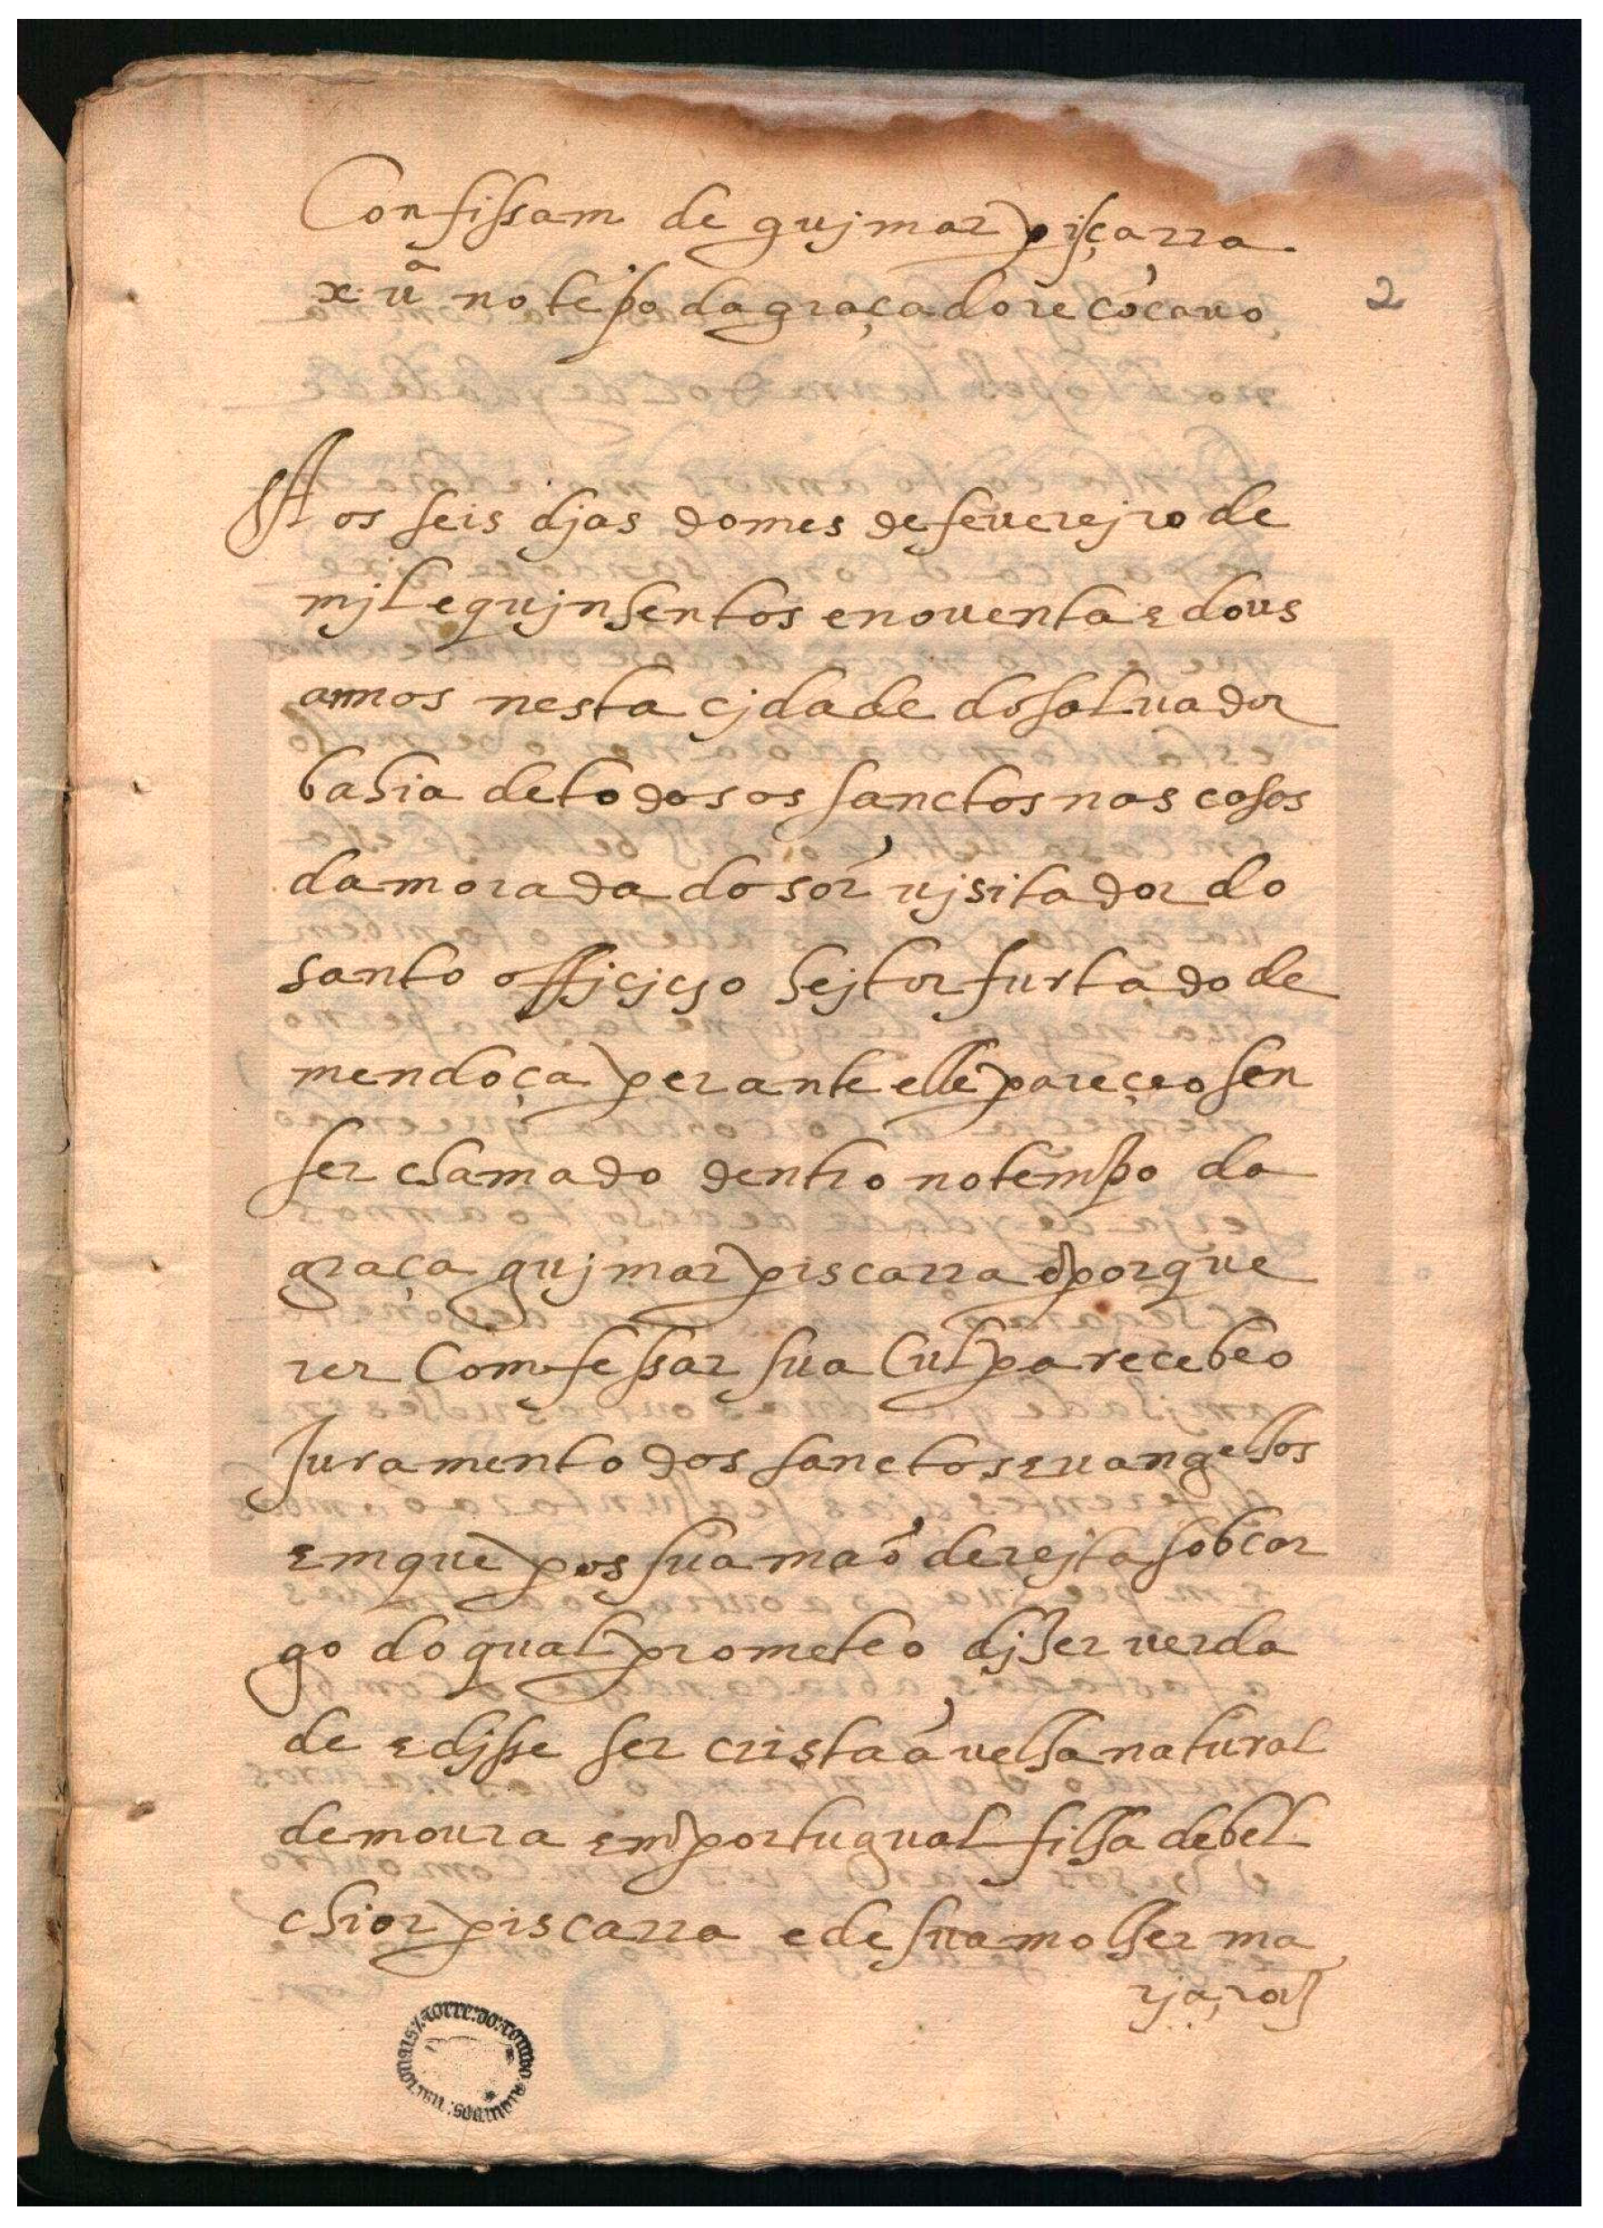 Confissam de gujmar pisçarra
x. uã no tẽpo da graça do recõcauo
2
Aos seis djas do mes de feuerejro de
mjl e qujnhentos e nouenta e dous
annos nesta cjdade do saluador
bahia de todos os sanctos nas casas
da morada do sõr ujsitador do
santo officjcjo hejtor furtado de
mendoça perante elle pareçeo sen
ser chamado dentro no tempo da
graça gujmar piscarra & por que
rer Comfessar sua Culpa recebeo
Juramento dos sanctos euangelhos
em que pos sua maõ derejta sob car
go do qual prometeo djzer uerda
de e djsse ser cristaã uelha natural
de moura em portugual filha de bel
chior piscarra e de sua molher ma
rja, roiz